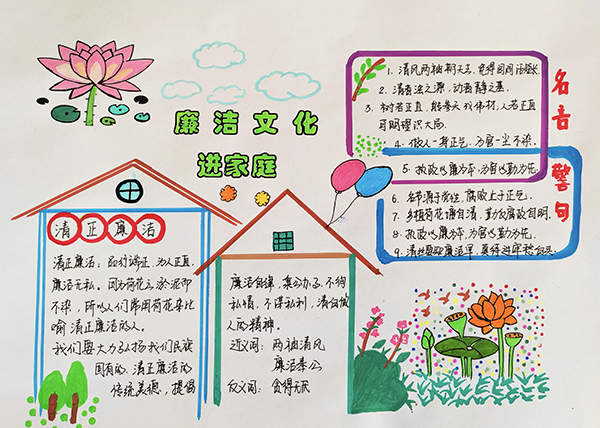 廉洁文化
进家庭
清正廉洁
清正廉洁，品行端正，为人正直，
廉洁无私，因为荷花出淤泥而
不染，所以人们常用荷花来比
喻清正廉洁的人。
我们要大力弘扬我们民族
固有的清正廉洁的
传统美德，提倡
廉洁自律，秉公办事，不徇
私情，不谋私利，清白做
人的精神。
近义词：两袖清风
廉洁奉公
反义词：贪得无厌
名言
警句
1. 清风两袖朝天去，免得闾阎话短长
2. 清者浊之源，动者静之基。
3. 树若正直，能参天成伟材，人若正直
可明理识大局。
4. 做人一身正气，为官一尘不染。
5. 执政以廉为本，为官以勤为先。
6. 名节源于党性，腐败止于正气。
7. 乡植荷花谨自清，勤反腐败自明。
8. 执政以廉为本，为官以勤为先
9.